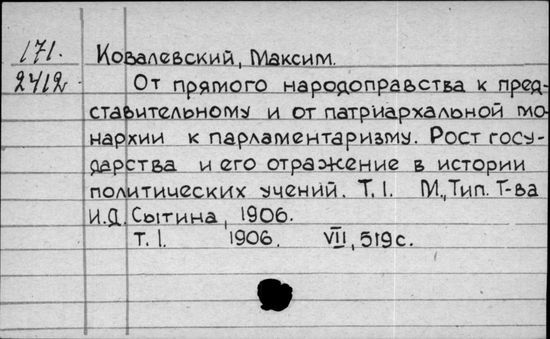 171. Ковалевский, Максим.
2412 От прямого народоправства к пред-
ставительному и от патриархальной мо-
нархии к парламентаризму. Рост госу-
дарства и его отражение в истории
политических учений. Т. I. М., Тип. Т-ва
И.Д. Сытина, 1906.
Т. I. 1906. VII, 519 с.